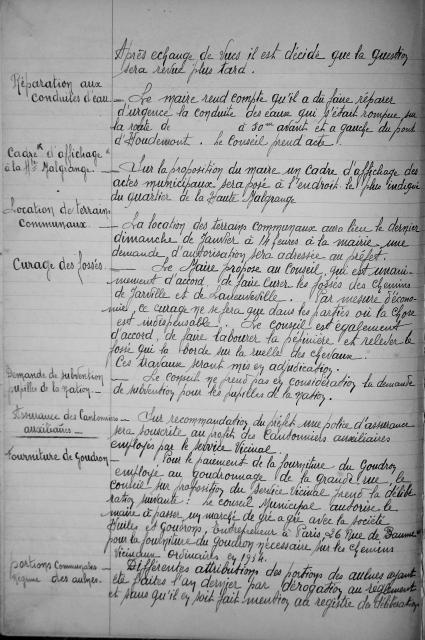 Après echange de vues il est décidé que la question
sera revue plus tard.
Réparation aux
conduites d'eau
— Le maire rend compte qu'il a dû faire réparer
d'urgence la conduite des eaux qui s'était rompue sur
la route de à 30m avant et à gauche du pont
d'Houdemont. Le Conseil prend acte.
Cadre d'affichage
à la Hte Malgrange.
— Sur la proposition du maire un cadre d'affichage des
actes municipaux sera posé à l'endroit le plus indiqué
du quartier de la Haute Malgrange
Location de terrains
communaux.
— La location des terrains communaux aura lieu le dernier
dimanche de Janvier à 14 heures à la mairie, une
demande d'autorisation sera adressée au préfet.
Curage des fossés.
— Le Maire propose au Conseil, qui est unani-
mement d'accord, de faire curer les fossés des chemins
de Jarville et de Laneuveville. Par mesure d'écono-
mies, ce curage ne se fera que dans les parties où la chose
est indispensable. Le conseil est également
d'accord, de faire labourer la pépinière et relever le
fossé qui la borde sur la ruelle des chevaux.
Ces travaux seront mis en adjudication.
Demande de subvention
pupilles de la Nation.
— Le Conseil ne prend pas en considération la demande
de subvention pour les pupilles de la Nation.
Assurance des Cantonniers
auxiliaires —
— Sur recommandation du préfet une police d'assurance
sera souscrite au profit des Cantonniers auxiliaires
employés par le service Vicinal.
Fourniture de Goudron
— Pour le paiement de la fourniture du Goudron
employé au goudronnage de la grande rue, le
Conseil sur proposition du Service Vicinal prend la délibé-
ration suivante: Le Conseil Municipal autorise le
maire à passer un marché de gré à gré avec la société
Huiles et Goudrons, Entrepreneur à Paris, 26 Rue de
pour la fourniture du Goudron nécessaire sur les chemins
Vicinaux Ordinaires en
portions Communales
Régime des aulnes.
— Différentes attributions des portions des aulnes ayant
été faites l'an dernier par dérogation au règlement
et sans qu'il en soit fait mention au registre de délibération